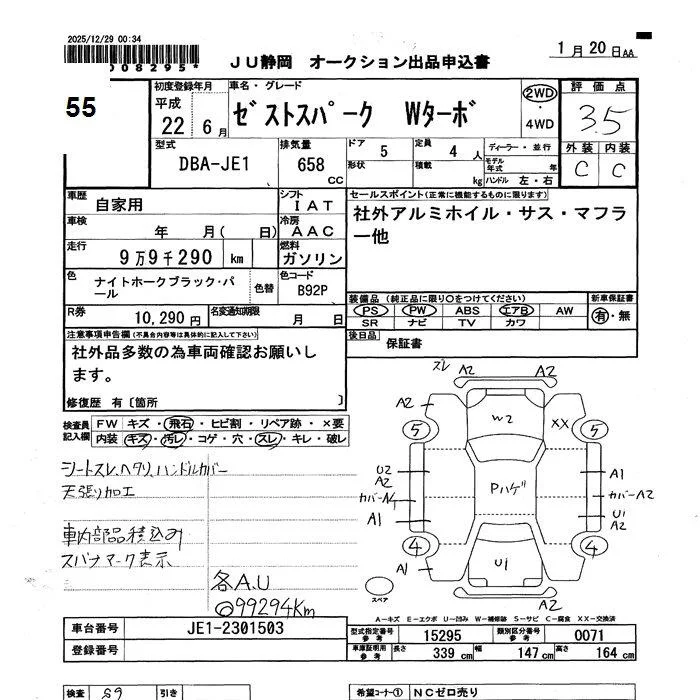 2025/12/29 00:34
008295*
JU静岡 オークション出品申込書
1月20日AA
55
初度登録年月
車名・グレード
平成
22年 6月
ゼストスパーク Wターボ
2WD
・
4WD
評価点
3.5
外装 内装
C C
型式
DBA-JE1
排気量
658
CC
ドア 5
形状
定員 4 人
積載 kg
ディーラー・並行
モデル年式 年
ハンドル 左・右
車歴
自家用
シフト
IAT
車検
年 月( 日)
冷房
AAC
走行
9万9千290 km
燃料
ガソリン
色
ナイトホークブラック・パール
色替
色コード
B92P
R券
10,290円
名変通知期限
月 日
セールスポイント(正常に機能するものに限ります)
社外アルミホイル・サス・マフラ
ー他
装備品(純正品に限り○をつけてください)
新車保証書
PS PW ABS エアB AW
SR ナビ TV カワ
有・無
後日品
保証書
注意事項申告欄(不具合内容等は具体的に記入して下さい)
社外品多数の為車両確認お願いし
ます。
修復歴 有〔箇所 〕
検査員
記入欄
FW キズ・飛石・ヒビ割・リペア跡・×要
内装 キズ・汚レ・コゲ・穴・スレ・キレ・破レ
シートスレ、ヘタリ、ハンドルカバー
天張り加工
車内部品積込み
スパナマーク表示
各A.U
◎99294Km
ズレ A2 A2
A2 W2 XX
5 5
U2
A2
Pハゲ
A1
カバーA2
U1
A2
A1
4 4
A1 U1
A2
スペア
A-キズ E-エクボ U-凹み W-補修跡 S-サビ C-腐食 XX-交換済
車台番号
JE1-2301503
登録番号
型式指定番号
参考
15295
類別区分番号
参考
0071
車庫証明用
参考
長さ 339 cm 幅 147 cm 高さ 164 cm
検査 S9
引き
希望コーナー① NCゼロ売り